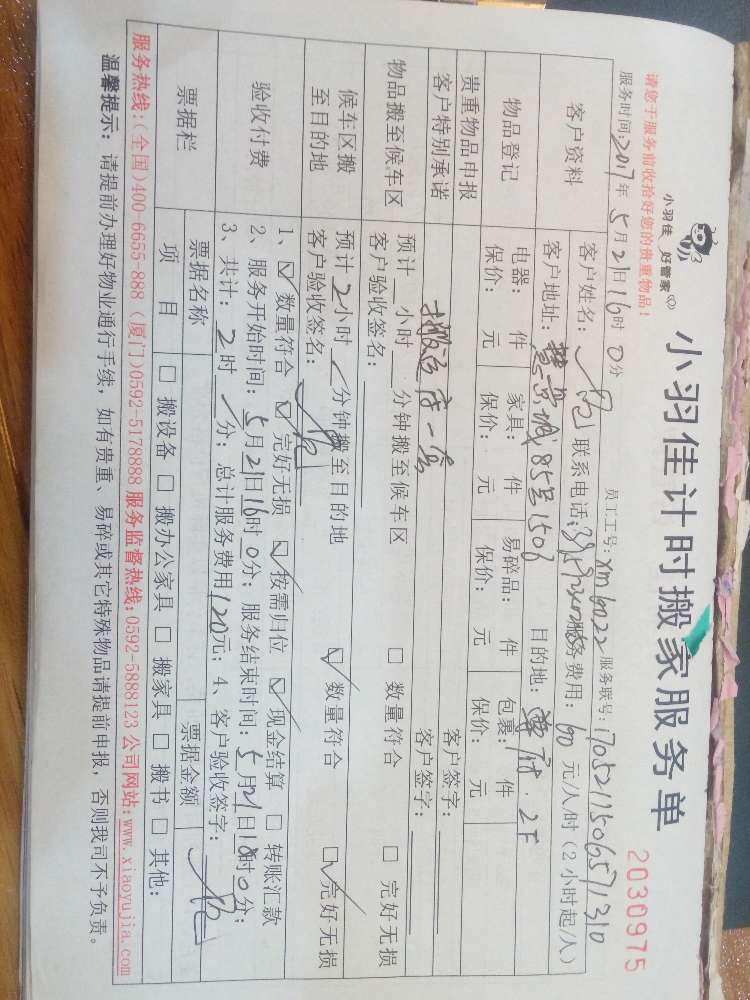 小羽佳 好管家
小羽佳计时搬家服务单
2030975
请您于服务前收拾好您的贵重物品!
员工工号:xm6022 服务联号:
服务时间:2017年5月21日16时0分
客户资料
客户姓名: 联系电话: 服务费用:60元/人/时(2小时起/人)
客户地址: 85号1506 目的地: 2F
物品登记
电器: 件 家具: 件 易碎品: 件 包裹: 件
保价: 元 保价: 元 保价: 元 保价: 元
贵重物品申报 客户签字:
客户特别承诺 客户签字:
物品搬至候车区
预计 小时 分钟搬至候车区 □ 数量符合 □ 完好无损
客户验收签名:
候车区搬至目的地
预计2小时/分钟搬至目的地 ☑ 数量符合 ☑ 完好无损
客户验收签名:
验收付费
1、☑ 数量符合 ☑ 完好无损 ☑ 按需归位 ☑ 现金结算 □ 转账汇款
2、服务开始时间:5月21日16时0分; 服务结束时间:5月21日18时0分;
3、共计:2时/分; 总计服务费用120元; 4、客户验收签字:
票据栏
票据名称 票据金额
项目 □ 搬设备 □ 搬办公家具 □ 搬家具 □ 搬书 □ 其他:
服务热线:(全国)400-6655-888 (厦门)0592-5178888 服务监督热线:0592-5888123 公司网站:www.xiaoyujia.com
温馨提示: 请提前办理好物业通行手续,如有贵重、易碎或其它特殊物品请提前申报,否则我司不予负责。